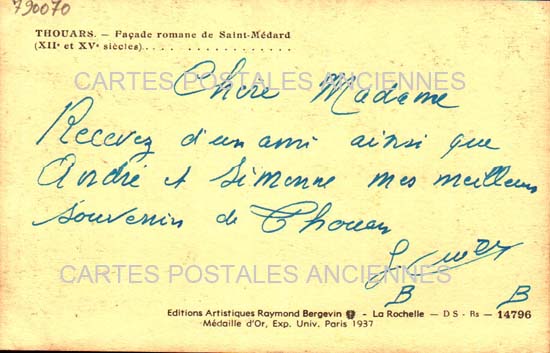 790070
THOUARS. — Façade romane de Saint-Médard
(XIIe et XVe siècles)....
CARTES POSTALES ANCIENNES
Chère Madame
Recevez d'un ami ainsi que
André et Simonne mes meilleurs
souvenirs de Thouars
CARTES POSTALES ANCIENNES
B B
Editions Artistiques Raymond Bergevin - La Rochelle — DS - Bs — 14796
Médaille d'Or, Exp. Univ. Paris 1937